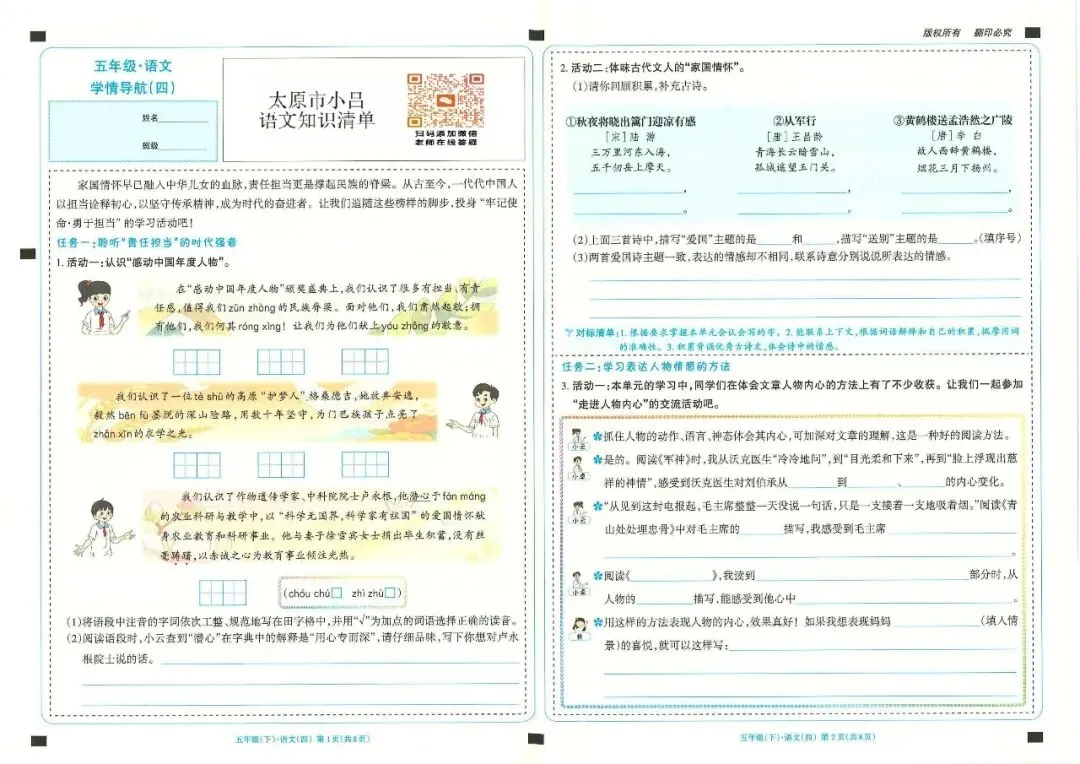 版权所有 翻印必究
五年级·语文
学情导航(四)
姓名
班级
太原市小吕
语文知识清单
扫码添加微信
老师在线答疑
家国情怀早已融入中华儿女的血脉,责任担当更是撑起民族的脊梁。从古至今,一代代中国人
以担当诠释初心,以坚守传承精神,成为时代的奋进者。让我们追随这些榜样的脚步,投身“牢记使
命·勇于担当”的学习活动吧!
任务一:聆听“责任担当”的时代强音
1.活动一:认识“感动中国年度人物”。
在“感动中国年度人物”颁奖盛典上,我们认识了很多有担当、有责
任感,值得我们zūn zhòng的民族脊梁。面对他们,我们肃然起敬;拥
有他们,我们何其róng xìng!让我们为他们献上yóu zhōng的敬意。
我们认识了一位tè shū的高原“护梦人”格桑德吉,她放弃安逸,
毅然bēn fù墨脱的深山险路,用数十年坚守,为门巴族孩子点亮了
zhǎn xīn的求学之光。
我们认识了作物遗传学家、中科院院士卢永根,他潜心于fán máng
的农业科研与教学中,以“科学无国界,科学家有祖国”的爱国情怀献
身农业教育和科研事业。他与妻子徐雪宾女士捐出毕生积蓄,没有丝
毫踌躇,以赤诚之心为教育事业倾注光热。
(chóu chú□ zhì zhù□)
(1)将语段中注音的字词依次工整、规范地写在田字格中,并用“√”为加点的词语选择正确的读音。
(2)阅读语段时,小云查到“潜心”在字典中的解释是“用心专而深”,请仔细品味,写下你想对卢永
根院士说的话。
五年级(下)·语文(四) 第1页(共8页)
2.活动二:体味古代文人的“家国情怀”。
(1)请你回顾积累,补充古诗。
①秋夜将晓出篱门迎凉有感 ②从军行 ③黄鹤楼送孟浩然之广陵
[宋]陆 游 [唐]王昌龄 [唐]李 白
三万里河东入海, 青海长云暗雪山, 故人西辞黄鹤楼,
五千仞岳上摩天。 孤城遥望玉门关。 烟花三月下扬州。
, , ,
。 。 。
(2)上面三首诗中,描写“爱国”主题的是______和______,描写“送别”主题的是______。(填序号)
(3)两首爱国诗主题一致,表达的情感却不相同,联系诗意分别说说所表达的情感。
对标清单:1.根据要求掌握本单元会认会写的字。2.能联系上下文,根据词语解释和自己的积累,揣摩用词
的准确性。3.积累背诵优秀古诗文,体会诗中的情感。
任务二:学习表达人物情感的方法
3.活动一:本单元的学习中,同学们在体会文章人物内心的方法上有了不少收获。让我们一起参加
“走进人物内心”的交流活动吧。
小云 抓住人物的动作、语言、神态体会其内心,可加深对文章的理解,这是一种好的阅读方法。
小卓 是的。阅读《军神》时,我从沃克医生“冷冷地问”,到“目光柔和下来”,再到“脸上浮现出慈
祥的神情”,感受到沃克医生对刘伯承从______到______、______的内心变化。
小云 “从见到这封电报起,毛主席整整一天没说一句话,只是一支接着一支地吸着烟。”阅读《青
山处处埋忠骨》中对毛主席的______描写,我感受到毛主席______
。
小卓 阅读《______》,我读到______部分时,从
人物的______描写,能感受到他心中______
我 用这样的方法表现人物的内心,效果真好!如果我想表现妈妈______(填人情
景)的喜悦,就可以这样写:______
五年级(下)·语文(四) 第2页(共8页)